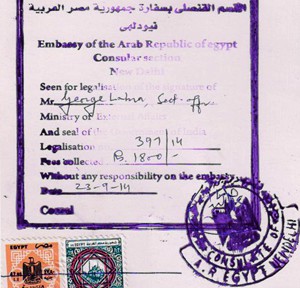 القسم القنصلى بسفارة جمهورية مصر العربية
نيودلهى
Embassy of the Arab Republic of egypt
Consular section
New Delhi
Seen for legalisation of the signature of
Mr. George
Ministry of External Affairs
And seal of the of India
Legalisation 397/14
Fees collected Rs. 1800/-
Without any responsibility on the embassy
Date 23-9-14
Consul
CONSULATE OF A.R EGYPT NEW DELHI